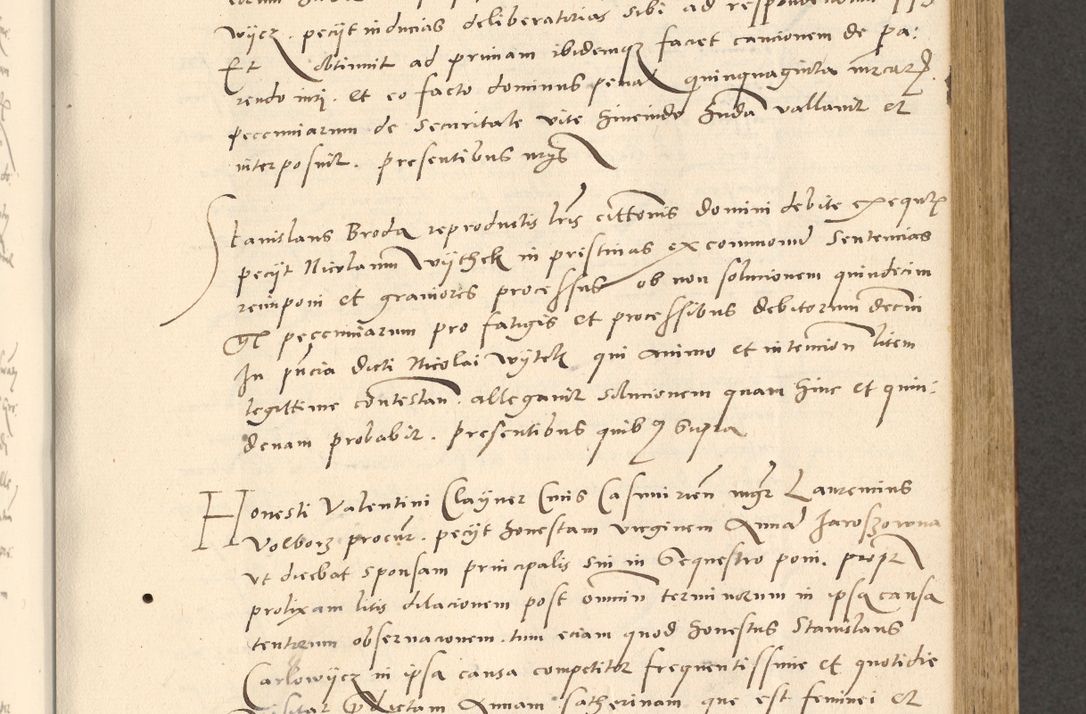 wycz . peciit inducias deliberatorias sibi ad
Et obtinuit ad primam ibidemq faciet caucionem de pa:
rendo iuri . et eo facto dominus pena quinquaginta mrcarz
pecuniarum de securitate vite hincinde Inda vallavit et
interposuit . presentibus
Stanislaus Broda reproductis lris cittonis domini debite exequtz
peciit Nicolaum Wythek in pristinas excommonu sentencias
reimponi et graviores processus ob non solucionem quindecim
gr pecuniarum pro fatigis et processibus debitorum decini
In pncia dicti Nicolai wytek qui animo et intencion litem
legittime contestan . allegavit solucionem quam hinc et quin:
denam probabit . presentibus quibz supra
Honesti Valentini Clayner Civis Casimirien mgr Laurencius
Volborz procur . peciit honestam virginem Anna Jaroszowna
vt dicebat sponsam principalis sui in sequestro poni . proptr
prolixam litis dilacionem post omniu terminorum in ipsa causa
tentorum observacionem . tum eciam quod honestus Stanislaus
Carlowycz in ipsa causa competitor frequentissime et quotidie
dictam Annam Catherinam que est feminei et